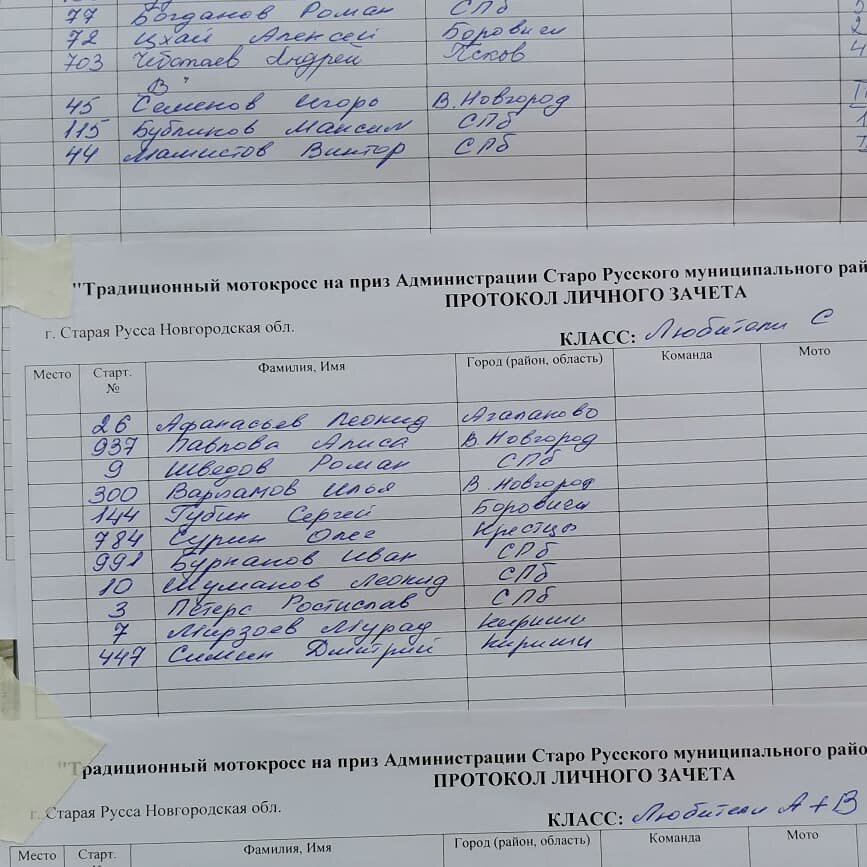 77 Богданов Роман СПб
72 Цхай Алексей Боровичи 2
703 Чеботаев Андрей Псков 4
"В"
45 Семенов Игорь В.Новгород
115 Бубликов Максим СПб 1
44 Мамистов Виктор СПб
"Традиционный мотокросс на приз Администрации Старо Русского муниципального рай
ПРОТОКОЛ ЛИЧНОГО ЗАЧЕТА
г. Старая Русса Новгородская обл. КЛАСС: Любители С
Место Старт. № Фамилия, Имя Город (район, область) Команда Мото
26 Афанасьев Леонид Агалатово
937 Павлова Алиса В.Новгород
9 Шведов Роман СПб
300 Варламов Илья В.Новгород
144 Губин Сергей Боровичи
784 Сурин Олег Крестцы
991 Бурканов Иван СПб
10 Шуманов Леонид СПб
3 Петерс Ростислав СПб
7 Мирзоев Мурад Кириши
447 Симин Дмитрий Кириши
"Традиционный мотокросс на приз Администрации Старо Русского муниципального райо
ПРОТОКОЛ ЛИЧНОГО ЗАЧЕТА
г. Старая Русса Новгородская обл. КЛАСС: Любители А+В
Место Старт. Фамилия, Имя Город (район, область) Команда Мото